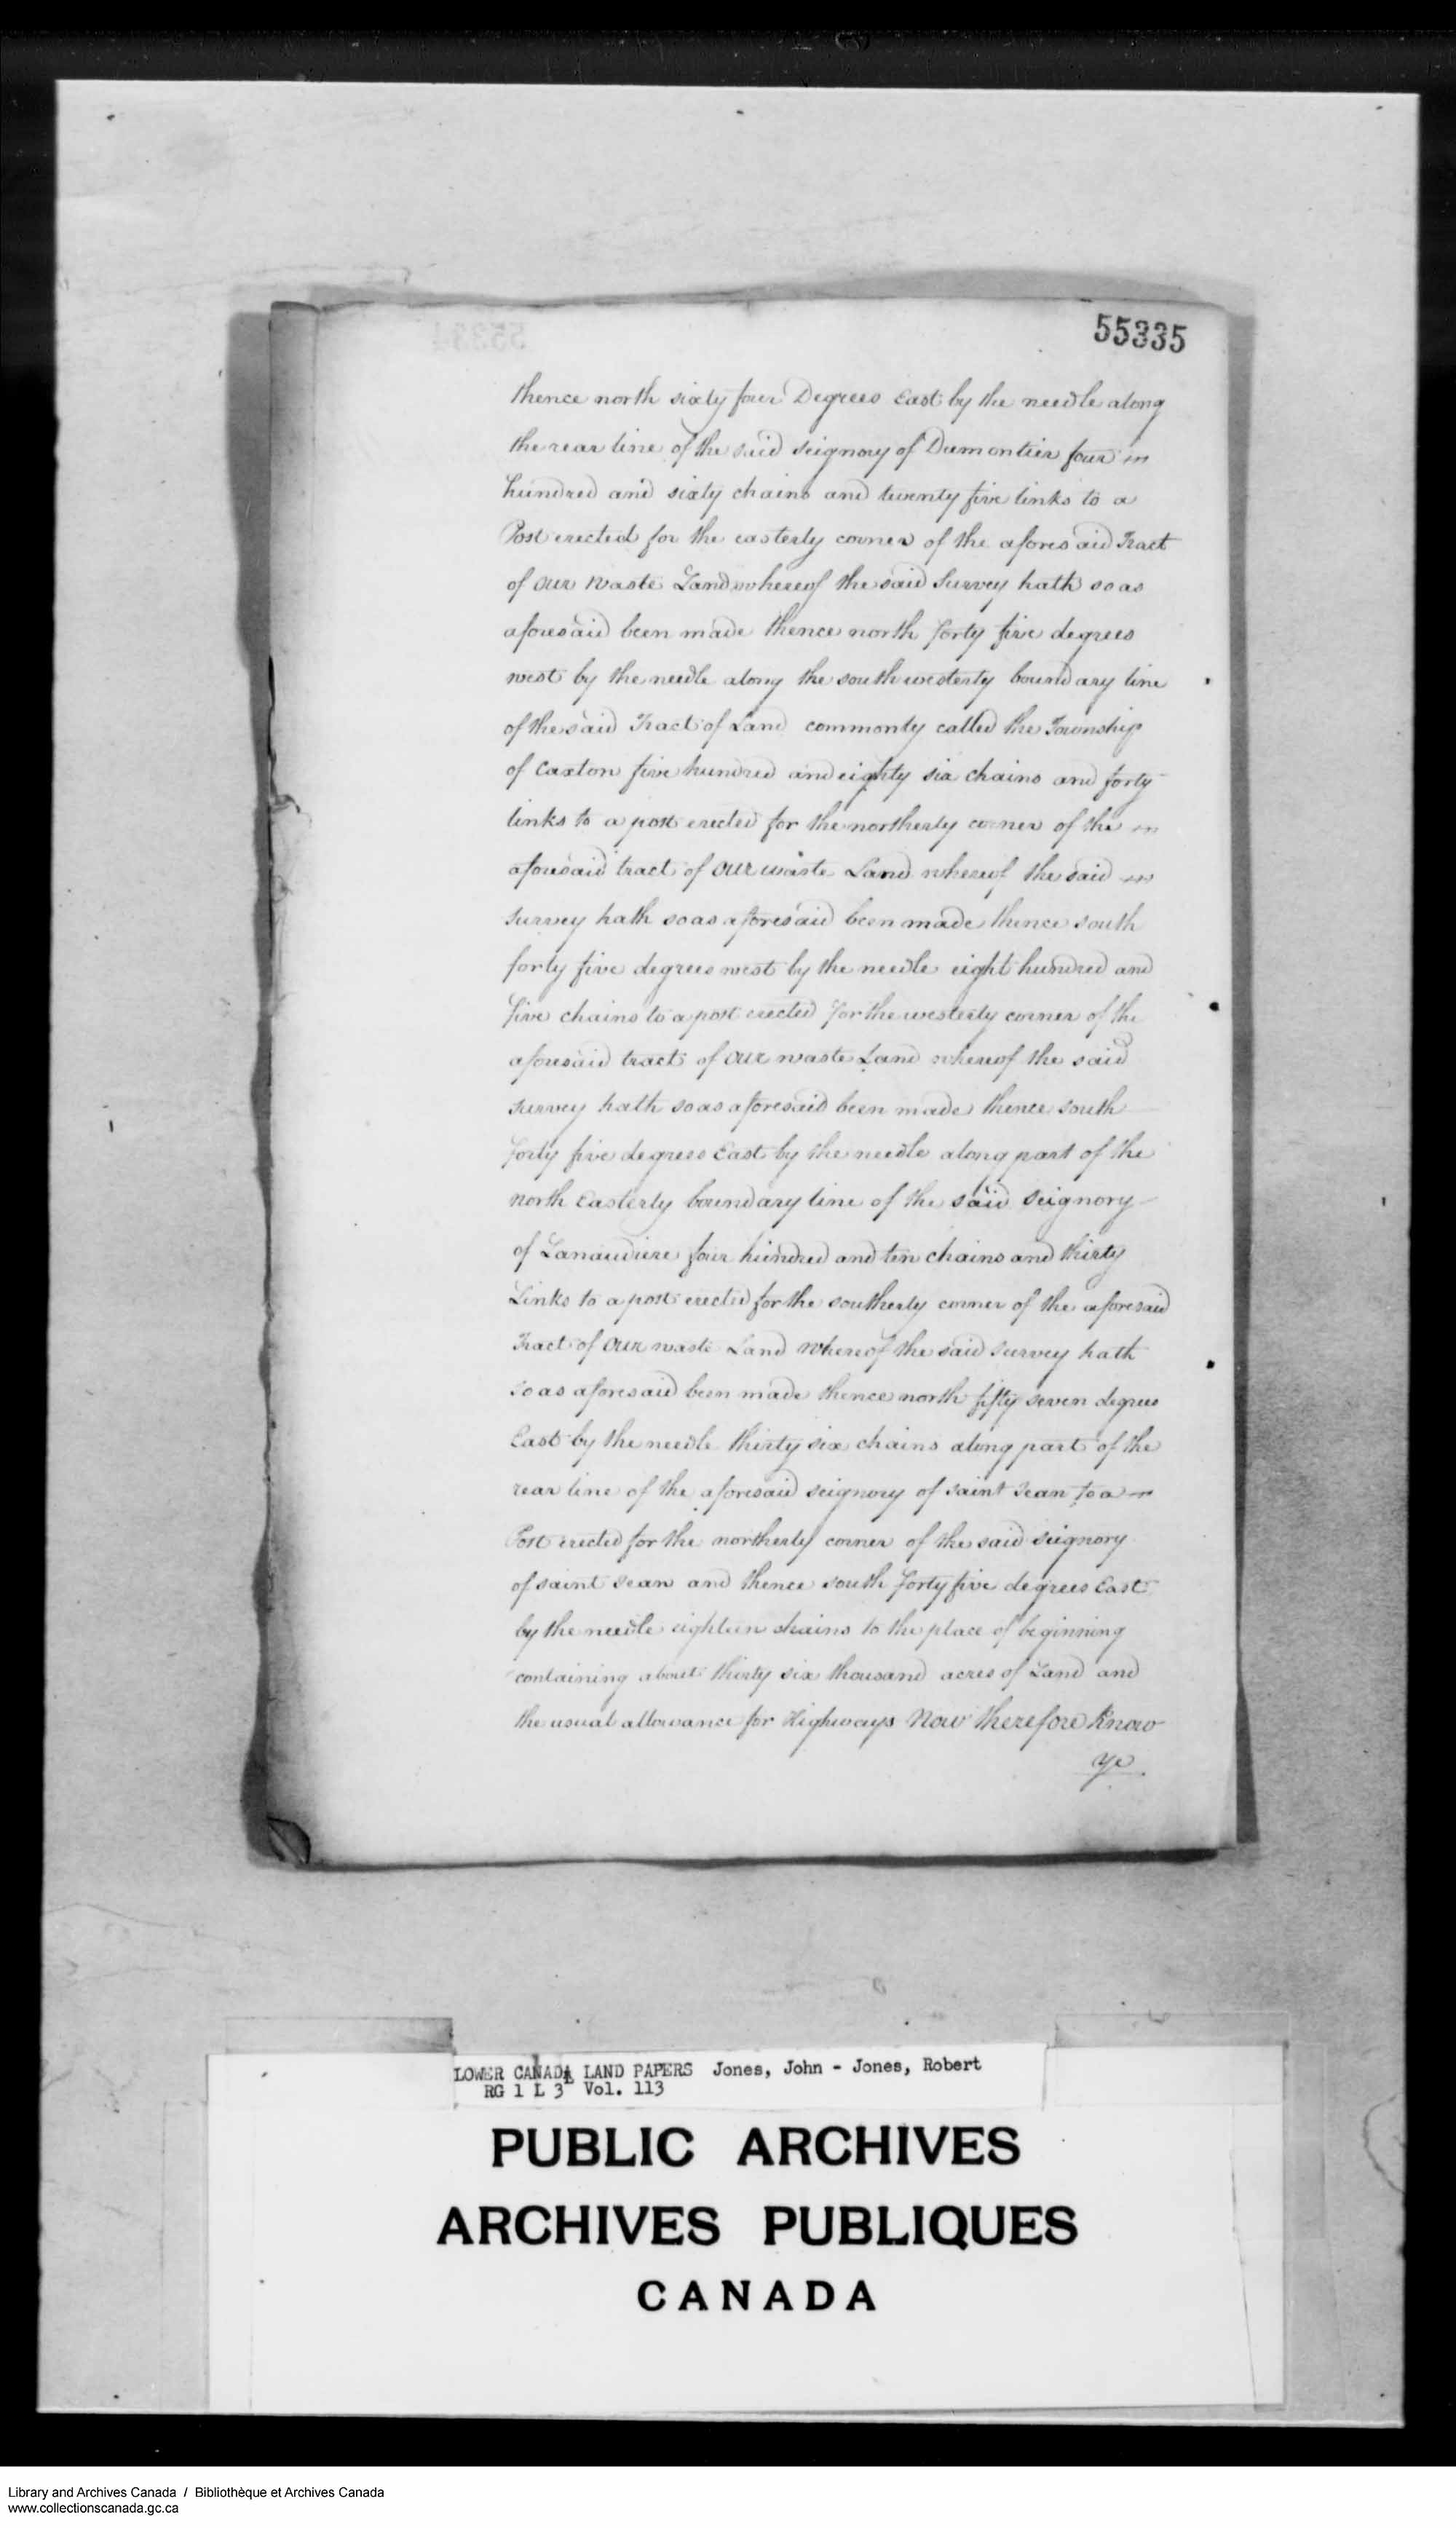 55335
thence north sixty four Degrees East by the needle along
the rear line of the said seignory of Dumontier four
hundred and sixty chains and twenty five links to a
Post erected for the easterly corner of the aforesaid Tract
of our waste Land whereof the said Survey hath so as
aforesaid been made thence north forty five degrees
west by the needle along the south westerly boundary line
of the said Tract of Land commonly called the Township
of Caxton five hundred and eighty six chains and forty
links to a post erected for the northerly corner of the
aforesaid tract of our waste Land whereof the said
survey hath so as aforesaid been made thence south
forty five degrees west by the needle eight hundred and
five chains to a post erected for the westerly corner of the
aforesaid tract of our waste Land whereof the said
survey hath so as aforesaid been made thence south
forty five degrees East by the needle along part of the
north Easterly boundary line of the said seignory
of Lanaudiere four hundred and ten chains and thirty
Links to a post erected for the southerly corner of the aforesaid
Tract of our waste Land whereof the said survey hath
so as aforesaid been made thence north fifty seven degrees
East by the needle thirty six chains along part of the
rear line of the aforesaid seignory of saint Jean to a
Post erected for the northerly corner of the said seignory
of saint Jean and thence south forty five degrees East
by the needle eighteen chains to the place of beginning
containing about thirty six thousand acres of Land and
the usual allowance for Highways Now therefore Know
ye
LOWER CANADA LAND PAPERS Jones, John - Jones, Robert
RG 1 L 3 Vol. 113
PUBLIC ARCHIVES
ARCHIVES PUBLIQUES
CANADA
Library and Archives Canada / Bibliothèque et Archives Canada
www.collectionscanada.gc.ca